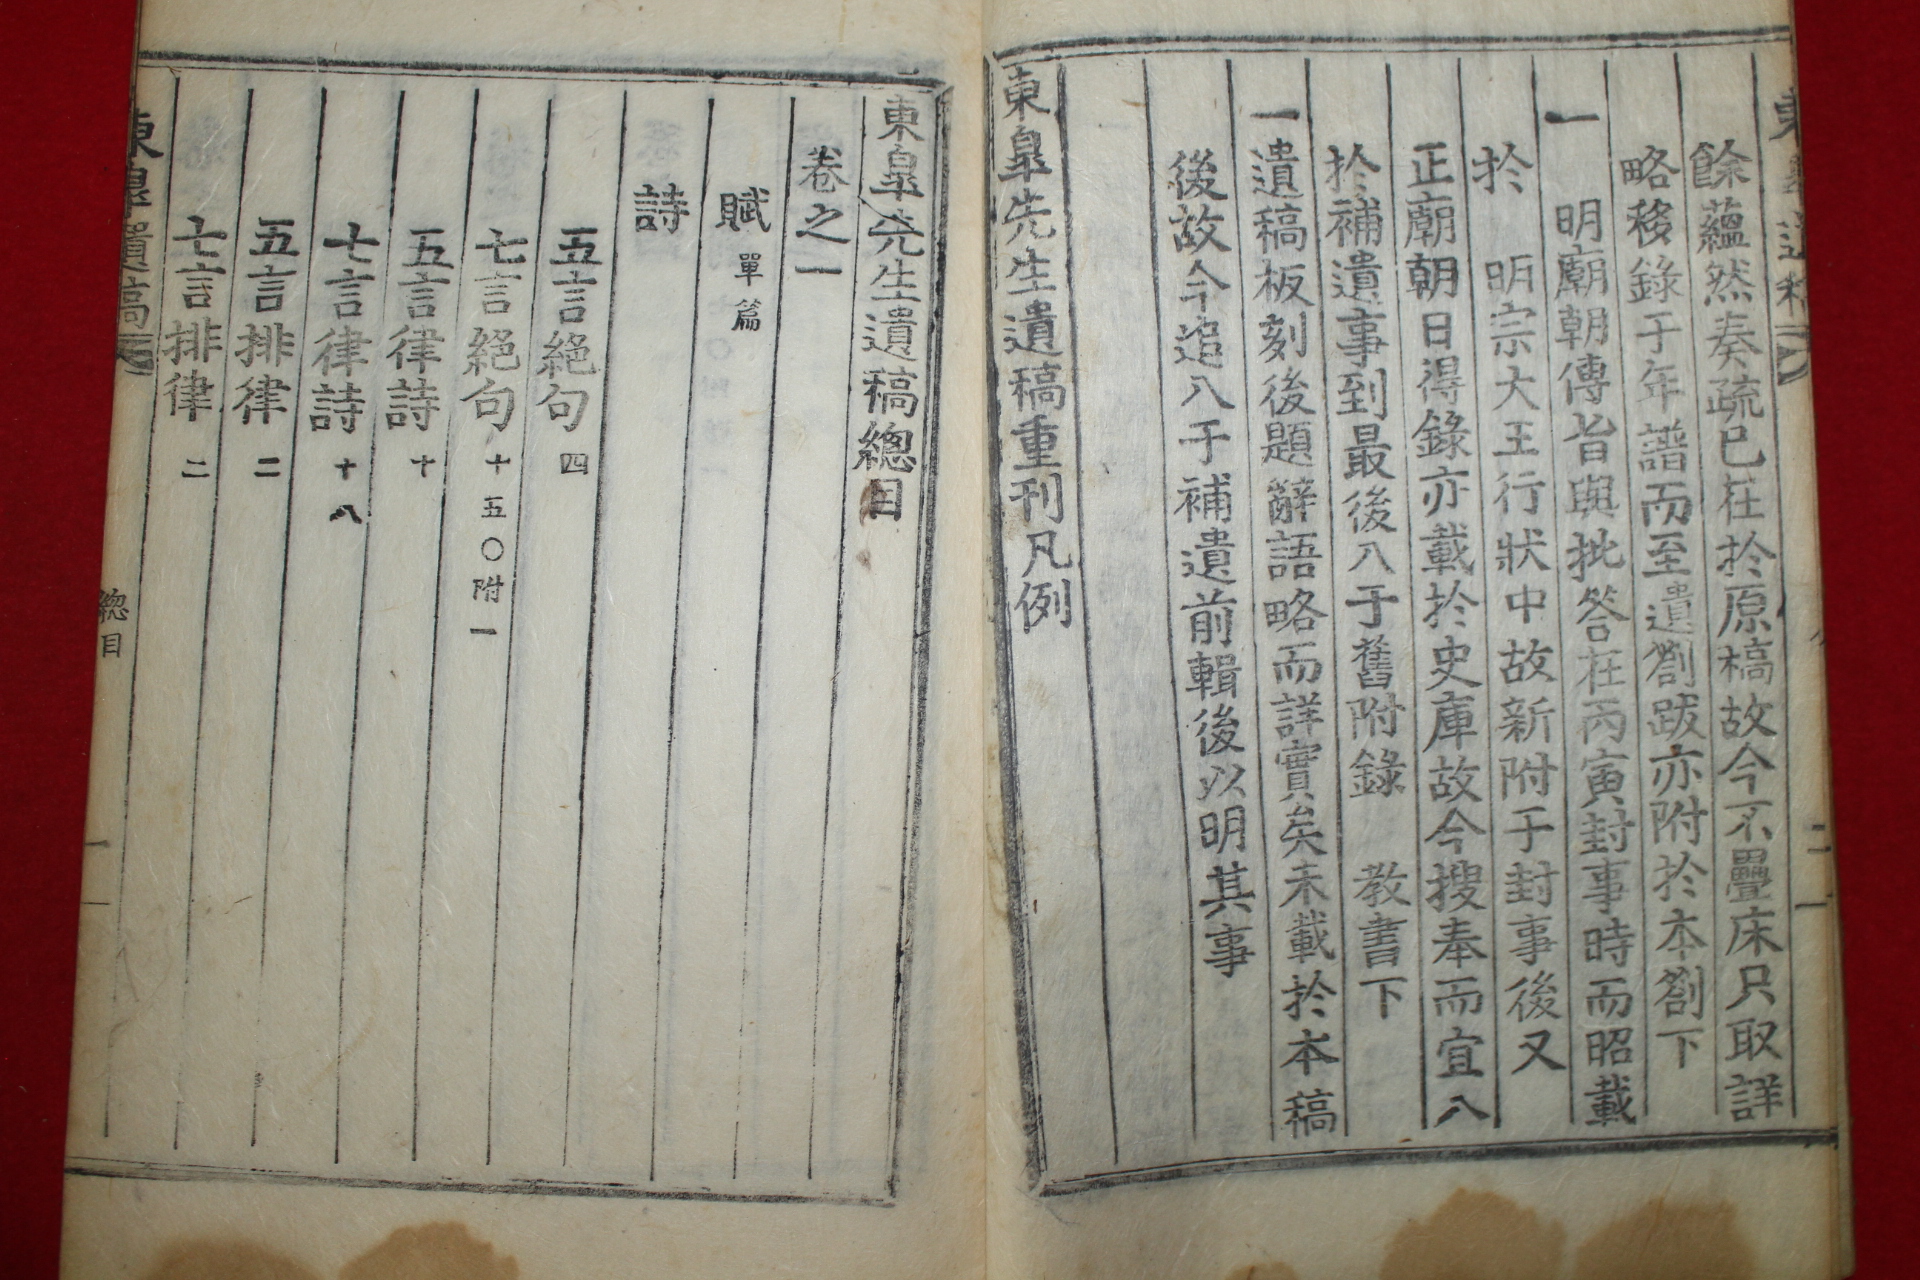 餘蘊然奏疏已在於原稿故今不疊床只取詳
略移錄于年譜而至遺劄跋亦附於本劄下
一 明廟朝傳旨與批答在丙寅封事時而昭載
於 明宗大王行狀中故新附于封事後又
正廟朝日得錄亦載於史庫故今搜奉而宜入
於補遺事到最後入于舊附錄 教書下
一遺稿板刻後題辭語略而詳實矣未載於本稿
後故今追入于補遺前輯後以明其事
東皐先生遺稿重刊凡例
東皐先生遺稿總目
卷之一
賦 單篇
詩
五言絕句 四
七言絕句 十五〇附一
五言律詩 十
七言律詩 十八
五言排律 二
七言排律 二
東皐遺稿 總目 一